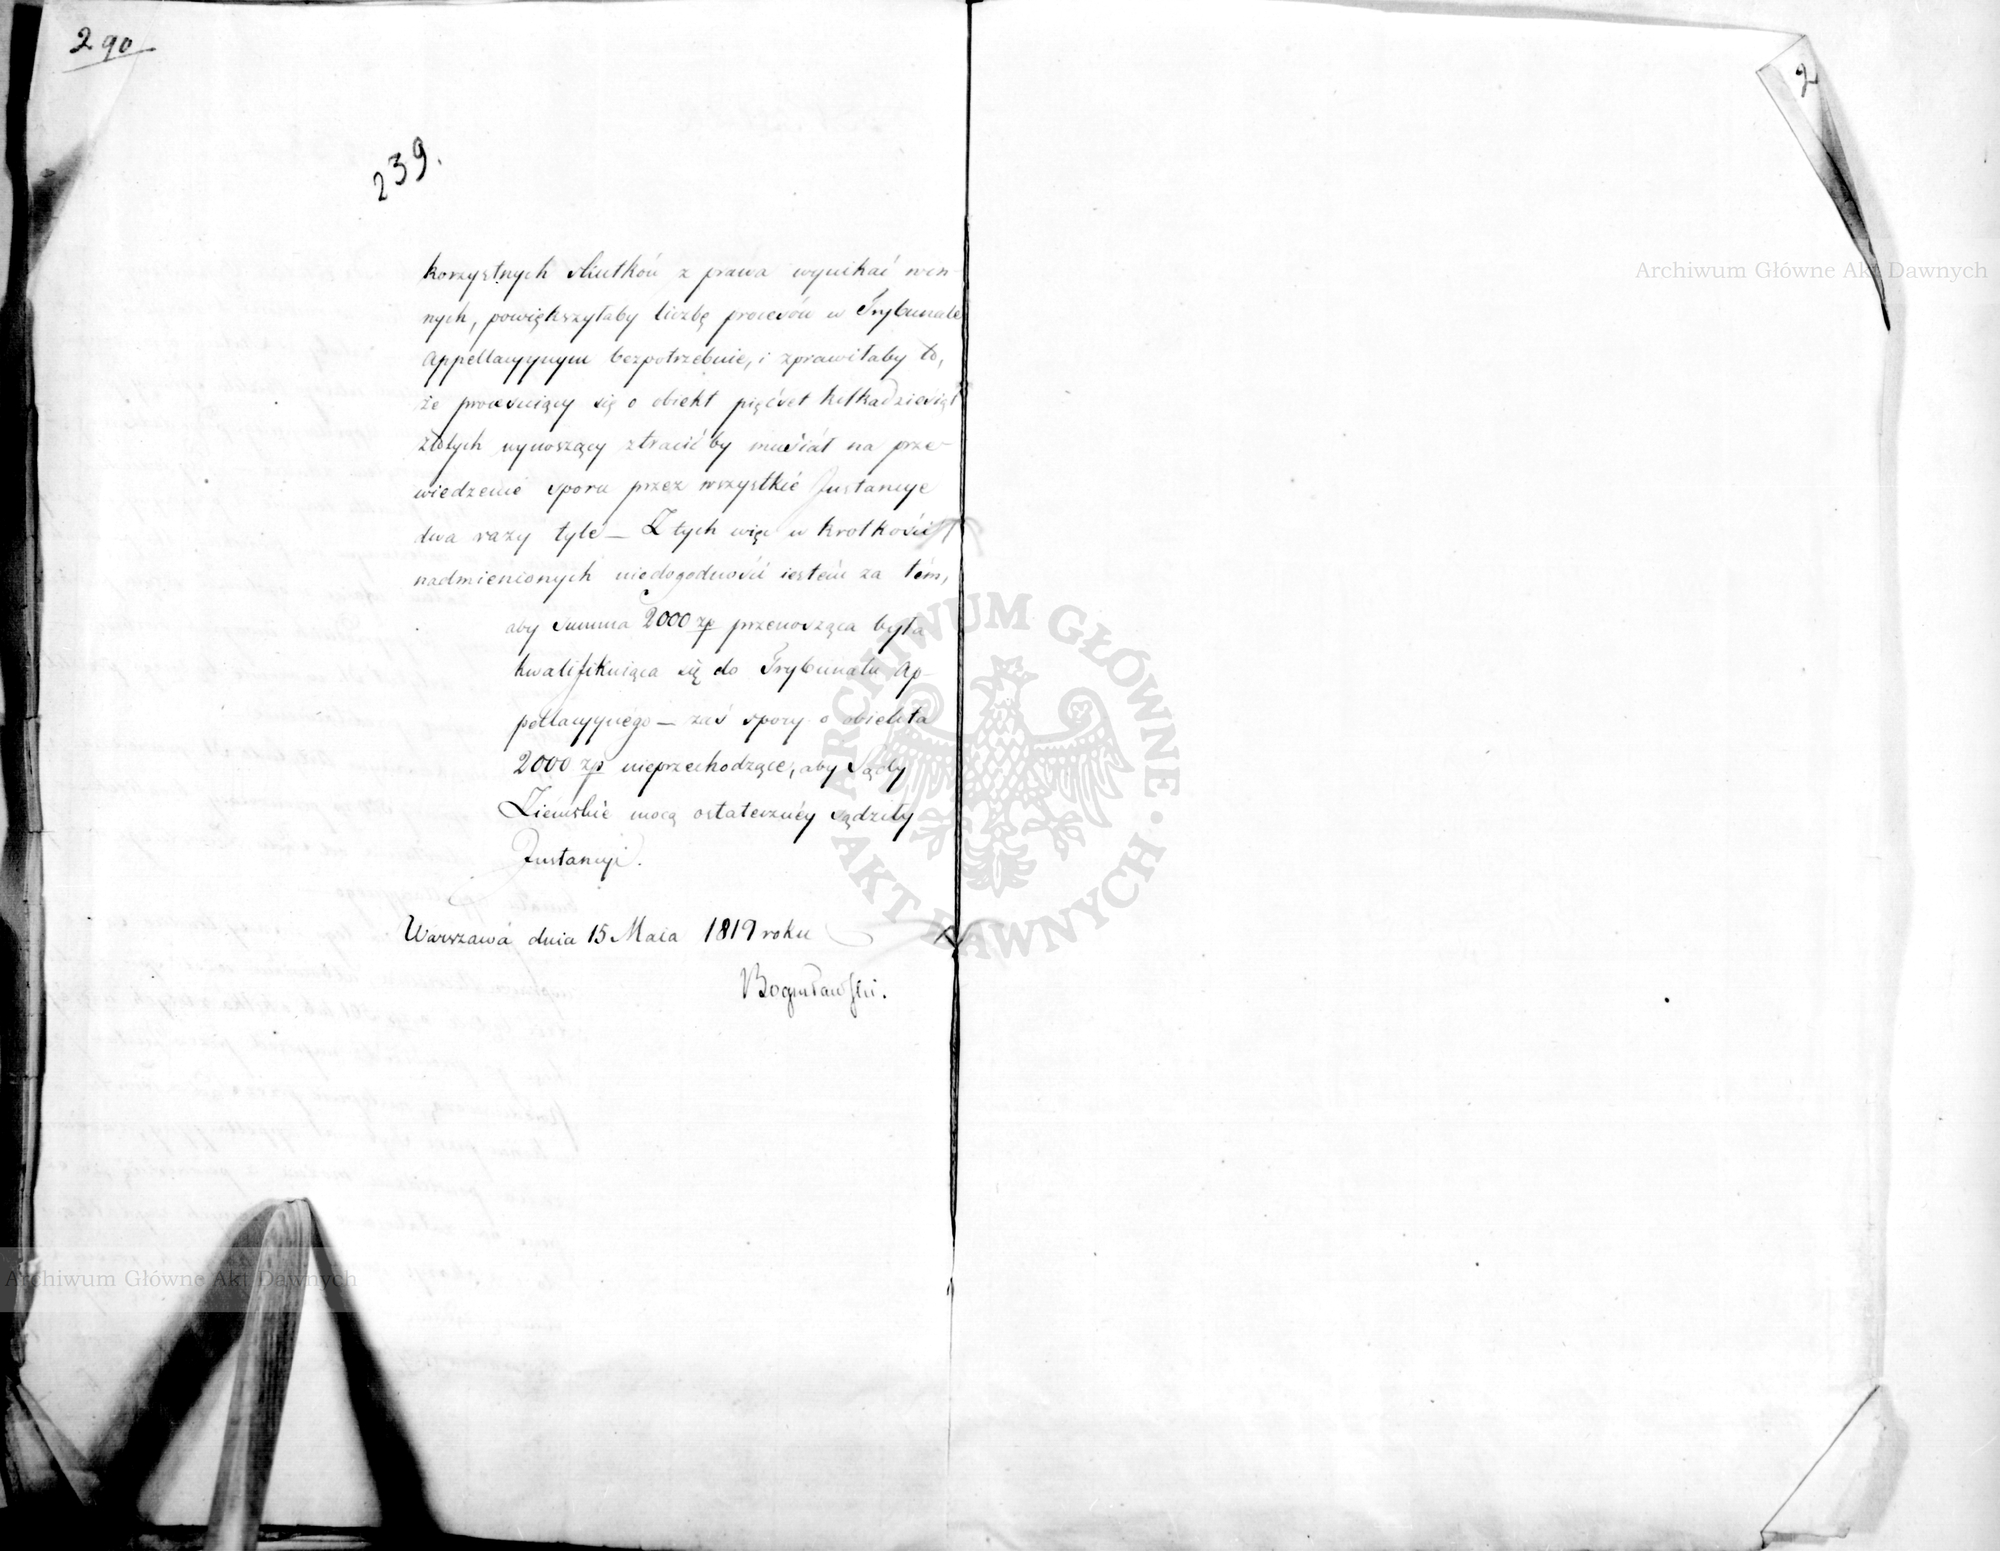 290
239.
2
korzystnych skutków z prawa wynikać win-
nych, powiększyłaby liczbę processów w Trybunale
Appellacyynym bezpotrzebnie, i zprawiłaby to,
że processuiący się o obiekt pięćset kilkadziesiąt
złotych wynoszący ztracić by musiał na prze-
wiedzenie sporu przez wszystkie Instancye
dwa razy tyle — Z tych więc w krotkości
nadmienionych niedogodności iestem za tém,
aby Summa 2000 zp przenosząca była
kwalifikuiąca się do Trybunału Ap-
pellacyynego — zaś spory o obiekta
2000 zp nieprzechodzące, aby Sądy
Ziemskie mocą ostateczney sądziły
Instancyi.
Warszawa dnia 15 Maia 1819 roku
Bogusławski.
Archiwum Główne Akt Dawnych
ARCHIWUM GŁÓWNE AKT DAWNYCH
Archiwum Główne Akt Dawnych